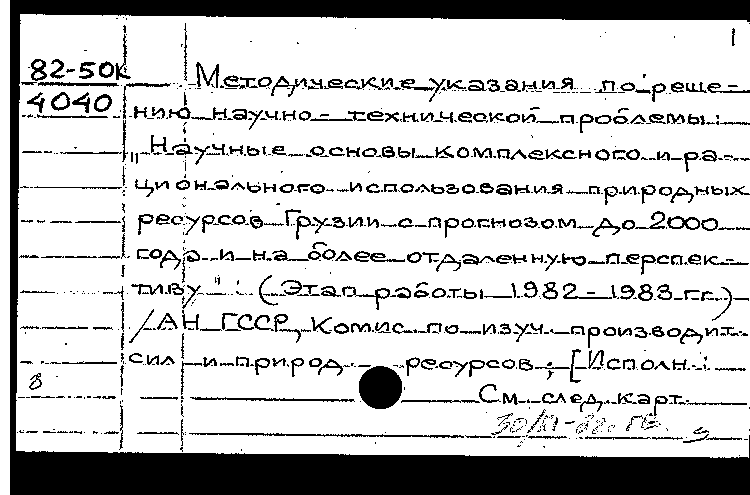 1
82-50к Методические указания по реше-
4040 нию научно-технической проблемы:
"Научные основы комплексного и ра-
ционального использования природных
ресурсов Грузии с прогнозом до 2000
года и на более отдаленную перспек-
тиву": (Этап работы 1982-1983 гг.)
/АН ГССР, Комис. по изуч. производит.
сил и природ. ресурсов; [Исполн.:
См. след. карт.